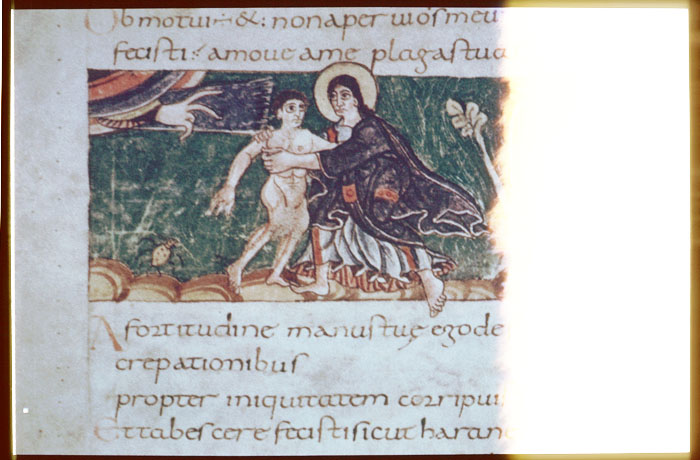 Obmotui & non aperui os meu
fecisti: amoue a me plagas tua
A fortitudine manus tuę ego de
crepationibus
propter iniquitatem corripui
Et tabescere fecisti sicut haran